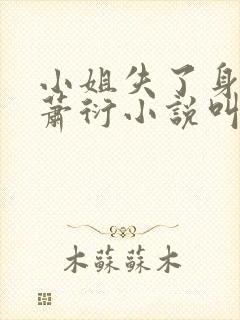 小姐失了身
蕭衍小說叫
木蘇蘇木